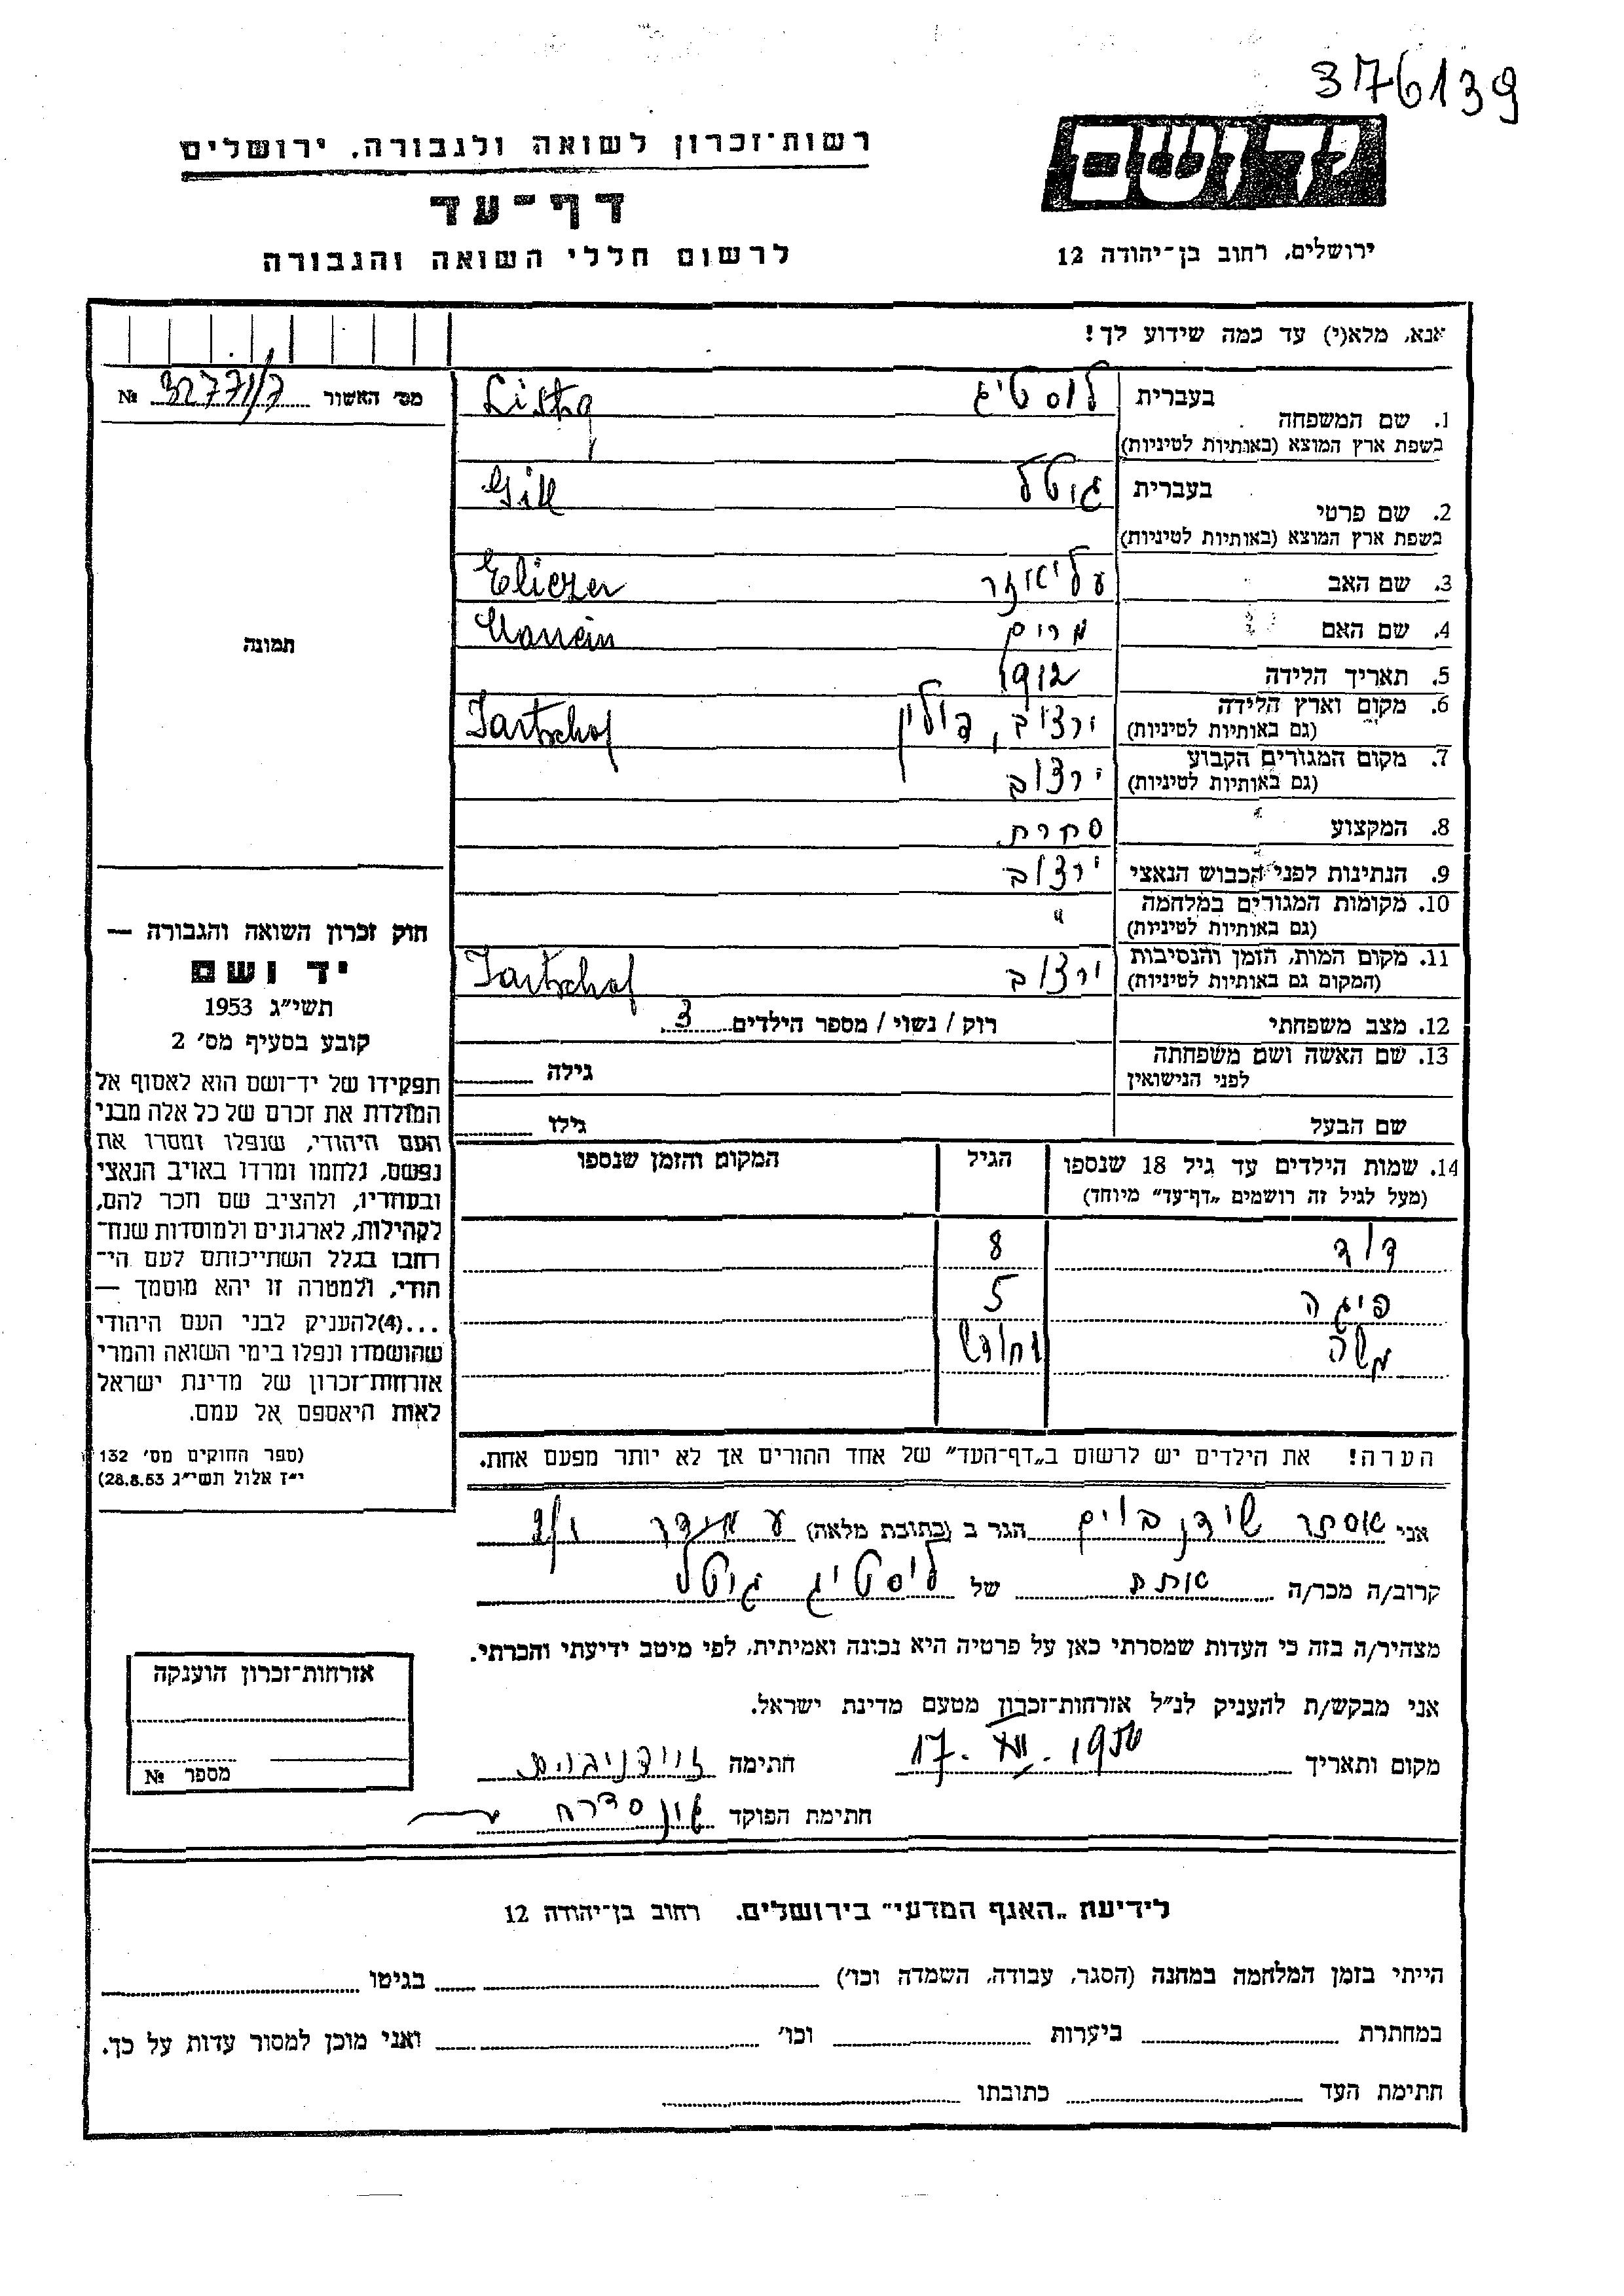 376139
רשות־זכרון לשואה ולגבורה, ירושלים
יד ושם
דף־עד
לרשום חללי השואה והגבורה
ירושלים, רחוב בן־יהודה 12
אנא, מלא(י) עד כמה שידוע לך!
מס׳ האשור № 32771/7
1. שם המשפחה בעברית לוסטיג
בשפת ארץ המוצא (באותיות לטיניות)
2. שם פרטי בעברית גיטל
בשפת ארץ המוצא (באותיות לטיניות)
3. שם האב Eliezer
4. שם האם מרים
5. תאריך הלידה 1912
6. מקום וארץ הלידה ירצוב, פולין Jartschof
(גם באותיות לטיניות)
7. מקום המגורים הקבוע ירצוב
(גם באותיות לטיניות)
8. המקצוע סחרת
9. הנתינות לפני הכבוש הנאצי ירצוב
10. מקומות המגורים במלחמה "
(גם באותיות לטיניות)
11. מקום המות, הזמן והנסיבות ירצוב Jartschof
(המקום גם באותיות לטיניות)
12. מצב משפחתי רוק / נשוי / מספר הילדים 3
13. שם האשה ושם משפחתה
לפני הנישואין גילה
שם הבעל גילו
14. שמות הילדים עד גיל 18 שנספו הגיל המקום והזמן שנספו
(מעל לגיל זה רושמים „דף־עד” מיוחד)
דוד 8
פיגה 5
משה
הערה! את הילדים יש לרשום ב„דף־העד” של אחד ההורים אך לא יותר מפעם אחת.
תמונה
חוק זכרון השואה והגבורה —
יד ושם
תשי״ג 1953
קובע בסעיף מס׳ 2
תפקידו של יד־ושם הוא לאסוף אל
המולדת את זכרם של כל אלה מבני
העם היהודי, שנפלו ומסרו את
נפשם, נלחמו ומרדו באויב הנאצי
ובעוזריו, ולהציב שם וזכר להם,
לקהילות, לארגונים ולמוסדות שנח־
רחבו בגלל השתייכותם לעם הי־
הודי, ולמטרה זו יהא מוסמך —
...(4)להעניק לבני העם היהודי
שהושמדו ונפלו בימי השואה והמרי
אזרחות־זכרון של מדינת ישראל
לאות היאספם אל עמם.
(ספר החוקים מס׳ 132
י״ז אלול תשי״ג 28.8.53)
אני אסתר הגר ב (כתובת מלאה)
קרוב/ה מכר/ה של ליסטיג גיטל
מצהיר/ה בזה כי העדות שמסרתי כאן על פרטיה היא נכונה ואמיתית, לפי מיטב ידיעתי והכרתי.
אני מבקש/ת להעניק לנ״ל אזרחות־זכרון מטעם מדינת ישראל.
מקום ותאריך 17. חתימה
חתימת הפוקד
אזרחות־זכרון הוענקה
מספר №
לידיעת „האגף המדעי” בירושלים, רחוב בן־יהודה 12
הייתי בזמן המלחמה במחנה (הסגר, עבודה, השמדה וכו׳) בגיטו
במחתרת ביערות וכו׳ ואני מוכן למסור עדות על כך.
חתימת העד כתובתו